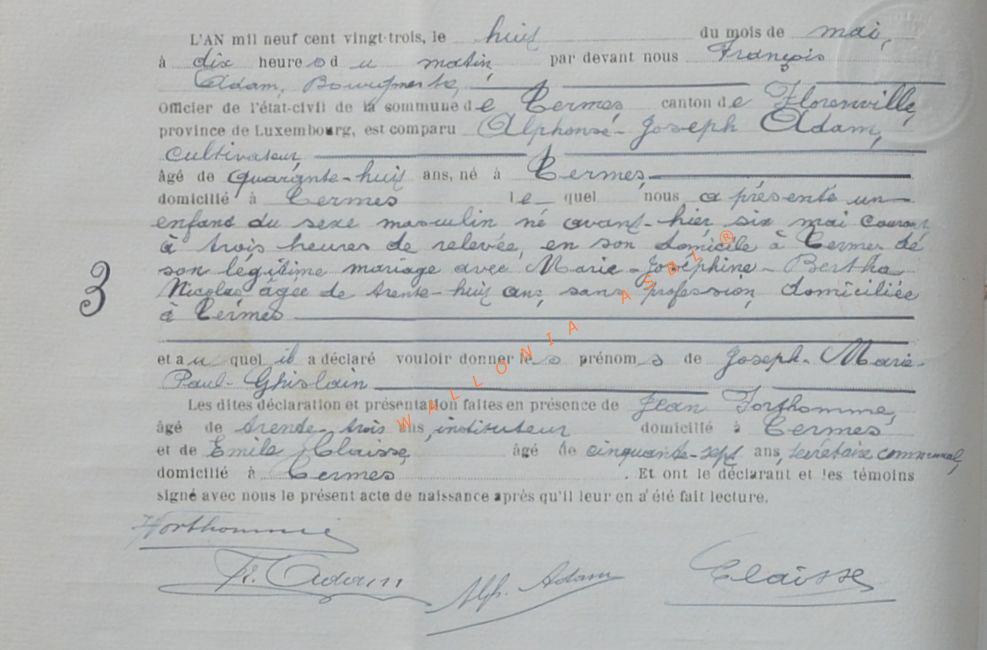 L'AN mil neuf cent vingt-trois, le huit du mois de mai,
à dix heures du matin, par devant nous François
Adam, Bourgmestre,
Officier de l'état-civil de la commune de Termes, canton de Florenville,
province de Luxembourg, est comparu Alphonse-Joseph Adam,
cultivateur,
âgé de quarante-huit ans, né à Termes,
domicilié à Termes lequel nous a présenté un
enfant du sexe masculin né avant-hier, six mai courant
à trois heures de relevée, en son domicile à Termes de
son légitime mariage avec Marie-Joséphine-Bertha
Nicolas âgée de trente-huit ans, sans profession, domiciliée
à Termes
3
et auquel il a déclaré vouloir donner les prénoms de Joseph-Marie-
Paul-Ghislain
Les dites déclaration et présentation faites en présence de Jean Forthomme,
âgé de trente-trois ans, instituteur domicilié à Termes
et de Emile Claisse, âgé de cinquante-sept ans, secrétaire communal,
domicilié à Termes. Et ont le déclarant et les témoins
signé avec nous le présent acte de naissance après qu'il leur en a été fait lecture.
WALLONIA ASBL ®
Forthomme
Fr. Adam Alph. Adam Claisse